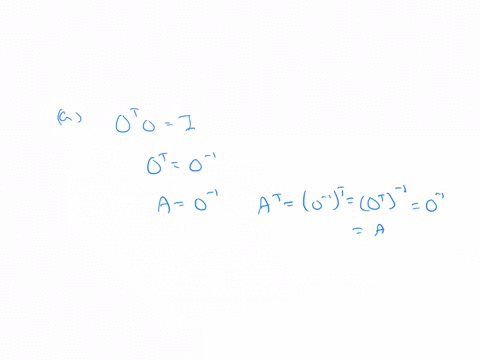 (a) O^T O = I
O^T = O^-1
A = O^-1 A^T = (O^-1)^T = (O^T)^-1 = O^-1
= A